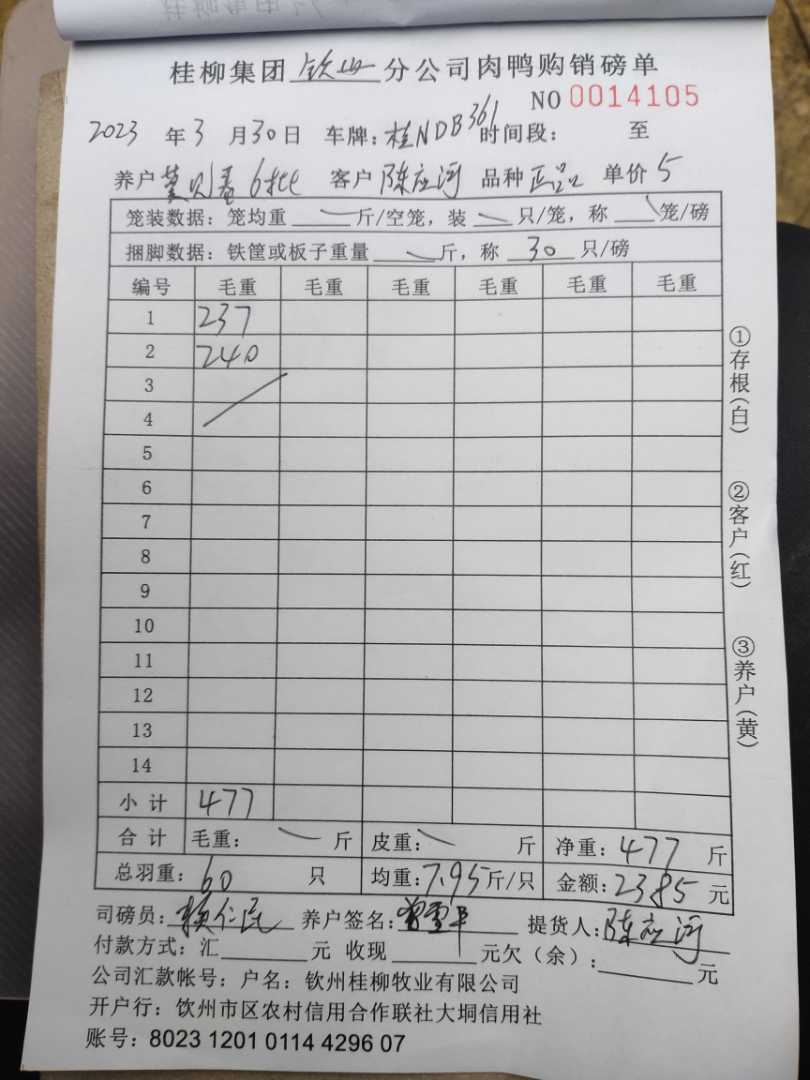 桂柳集团 钦州 分公司肉鸭购销磅单
NO 0014105
2023 年 3 月 30 日 车牌：桂NDB361 时间段： 至
养户 6批 客户 陈应河 品种 正品 单价 5
笼装数据：笼均重 斤/空笼，装 只/笼，称 笼/磅
捆脚数据：铁筐或板子重量 斤，称 30 只/磅
编号 毛重 毛重 毛重 毛重 毛重 毛重
1 237
2 240
3
4
5
6
7
8
9
10
11
12
13
14
小计 477
合计 毛重： 斤 皮重： 斤 净重：477 斤
总羽重：60 只 均重：7.95 斤/只 金额：2385 元
司磅员：赖仁民 养户签名： 提货人：陈应河
付款方式：汇 元 收现 元欠（余）： 元
公司汇款帐号：户名：钦州桂柳牧业有限公司
开户行：钦州市区农村信用合作联社大垌信用社
账号：8023 1201 0114 4296 07
①存根(白)
②客户(红)
③养户(黄)